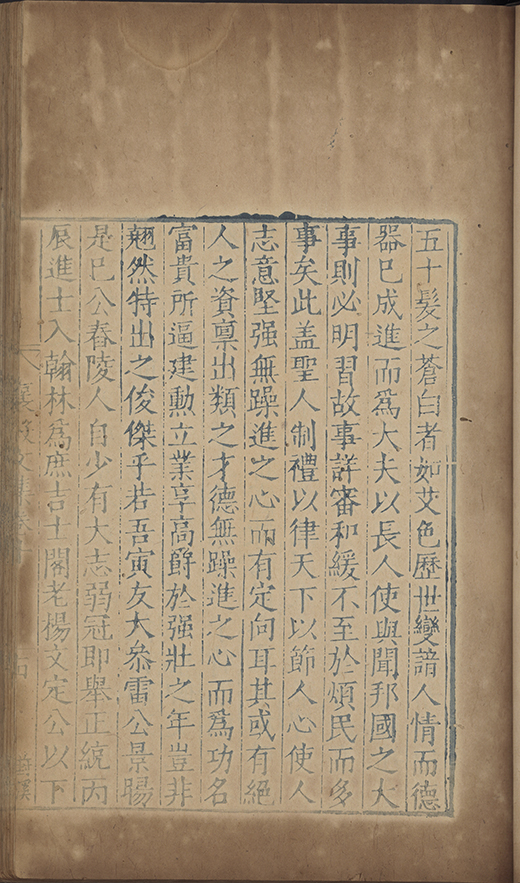 五十髮之蒼白者如艾色歷世變諳人情而德
器已成進而爲大夫以長人使與聞邦國之大
事則必明習故事詳審和緩不至於煩民而多
事矣此盖聖人制禮以律天下以節人心使人
志意堅强無躁進之心而有定向耳其或有絕
人之資禀出類之才德無躁進之心而爲功名
富貴所逼建勳立業享高爵於强壯之年豈非
翹然特出之俊傑乎若吾寅友大叅雷公景暘
是巳公舂陵人自少有大志弱冠即舉正統丙
辰進士入翰林爲庶吉士閣老楊文定公以下